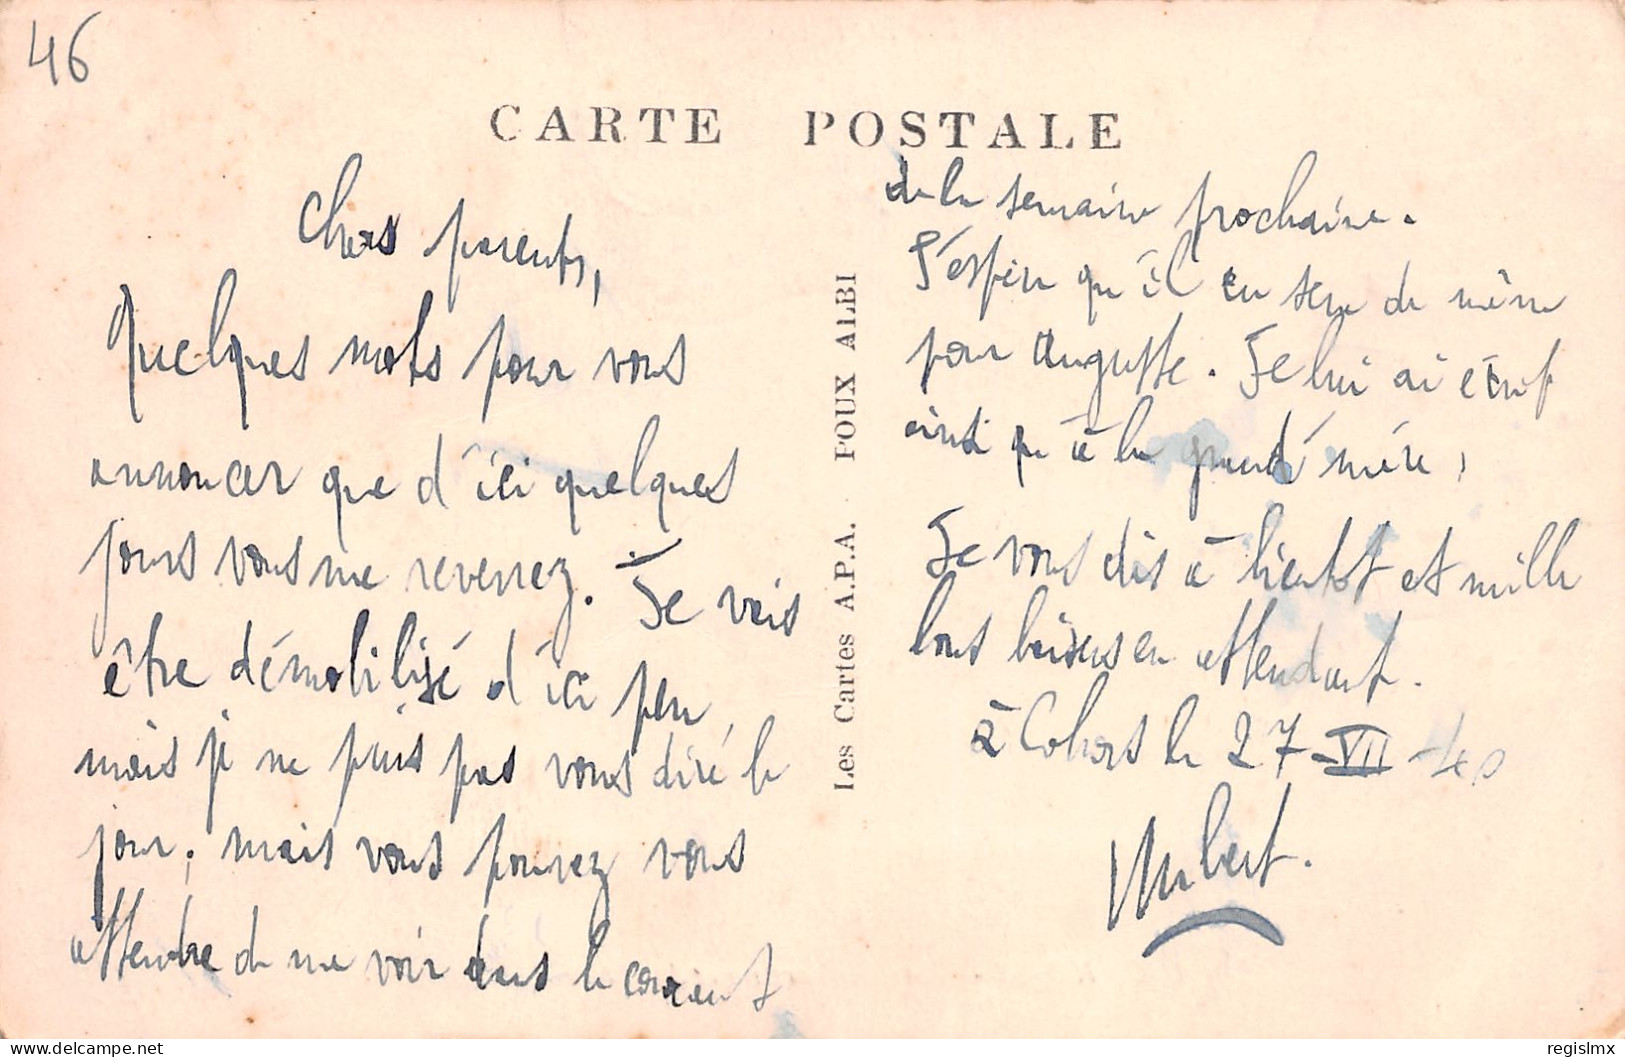 46
CARTE POSTALE
Chers parents,
Quelques mots pour vous
annoncer que d'ici quelques
jours vous me reverrez. Je vais
être démobilisé d'ici peu
mais je ne puis pas vous dire le
jour, mais vous pouvez vous
attendre de me voir dans le courant
de la semaine prochaine.
J'espère qu'il en sera de même
pour Auguste. Je lui ai écrit
ainsi qu'à la grand'mère,
Je vous dis à bientôt et mille
bons baisers en attendant.
à Cahors le 27-VII-40
Hubert.
Les Cartes A.P.A. POUX ALBI
delcampe.net
regislmx